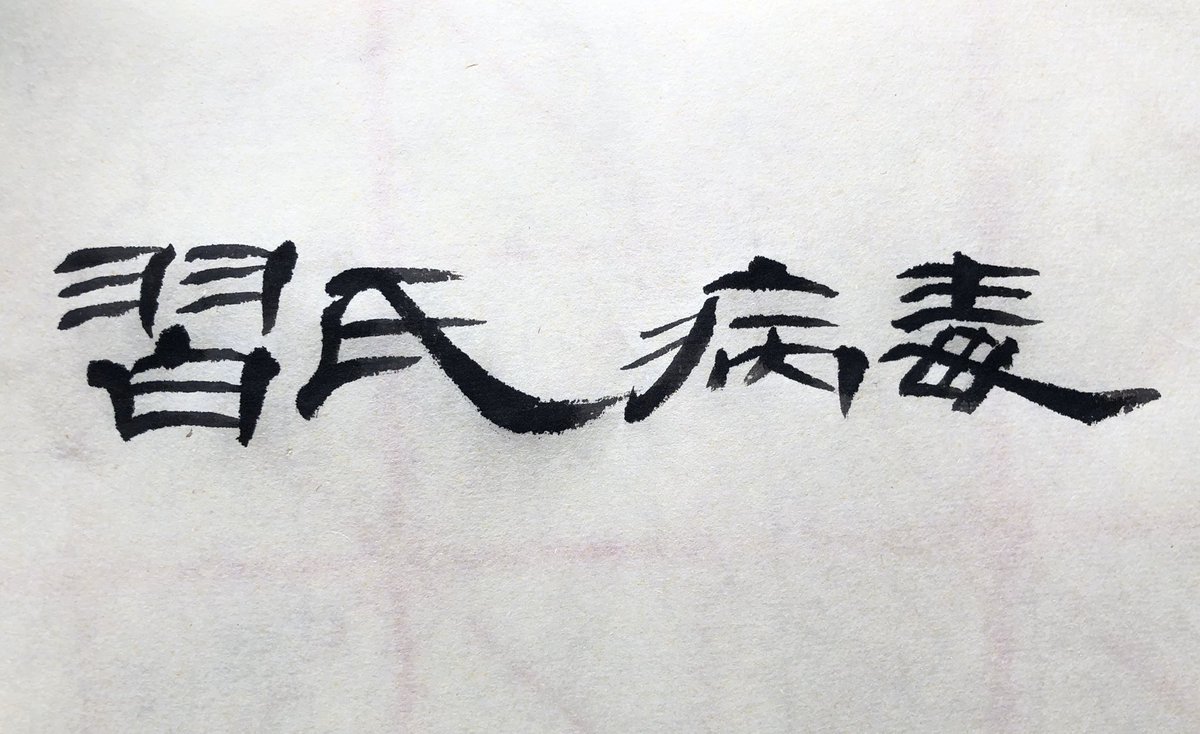 習氏病毒